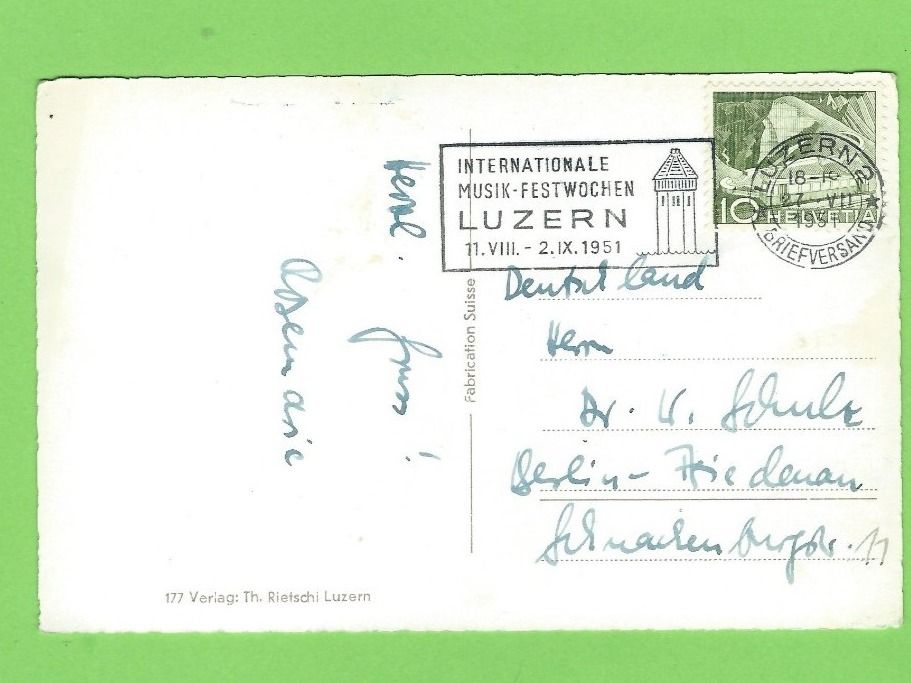 INTERNATIONALE
MUSIK-FESTWOCHEN
LUZERN
11.VIII. - 2.IX.1951
LUZERN 2
18-
27. VII
1951
BRIEFVERSAND
10 HELVETIA
Herzl.
Gruss!
Fabrication Suisse
Deutschland
Herrn
Dr. W. Schulz
Berlin - Friedenau
Schnackenburgstr. 11
177 Verlag: Th. Rietschi Luzern